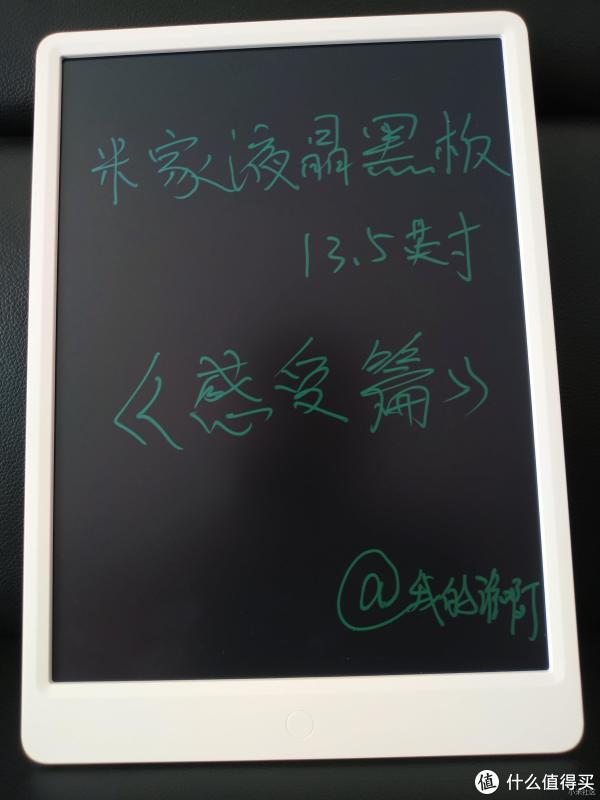 米家液晶黑板
13.5英寸
《感受篇》
@我的谁啊
值 什么值得买
小米社区